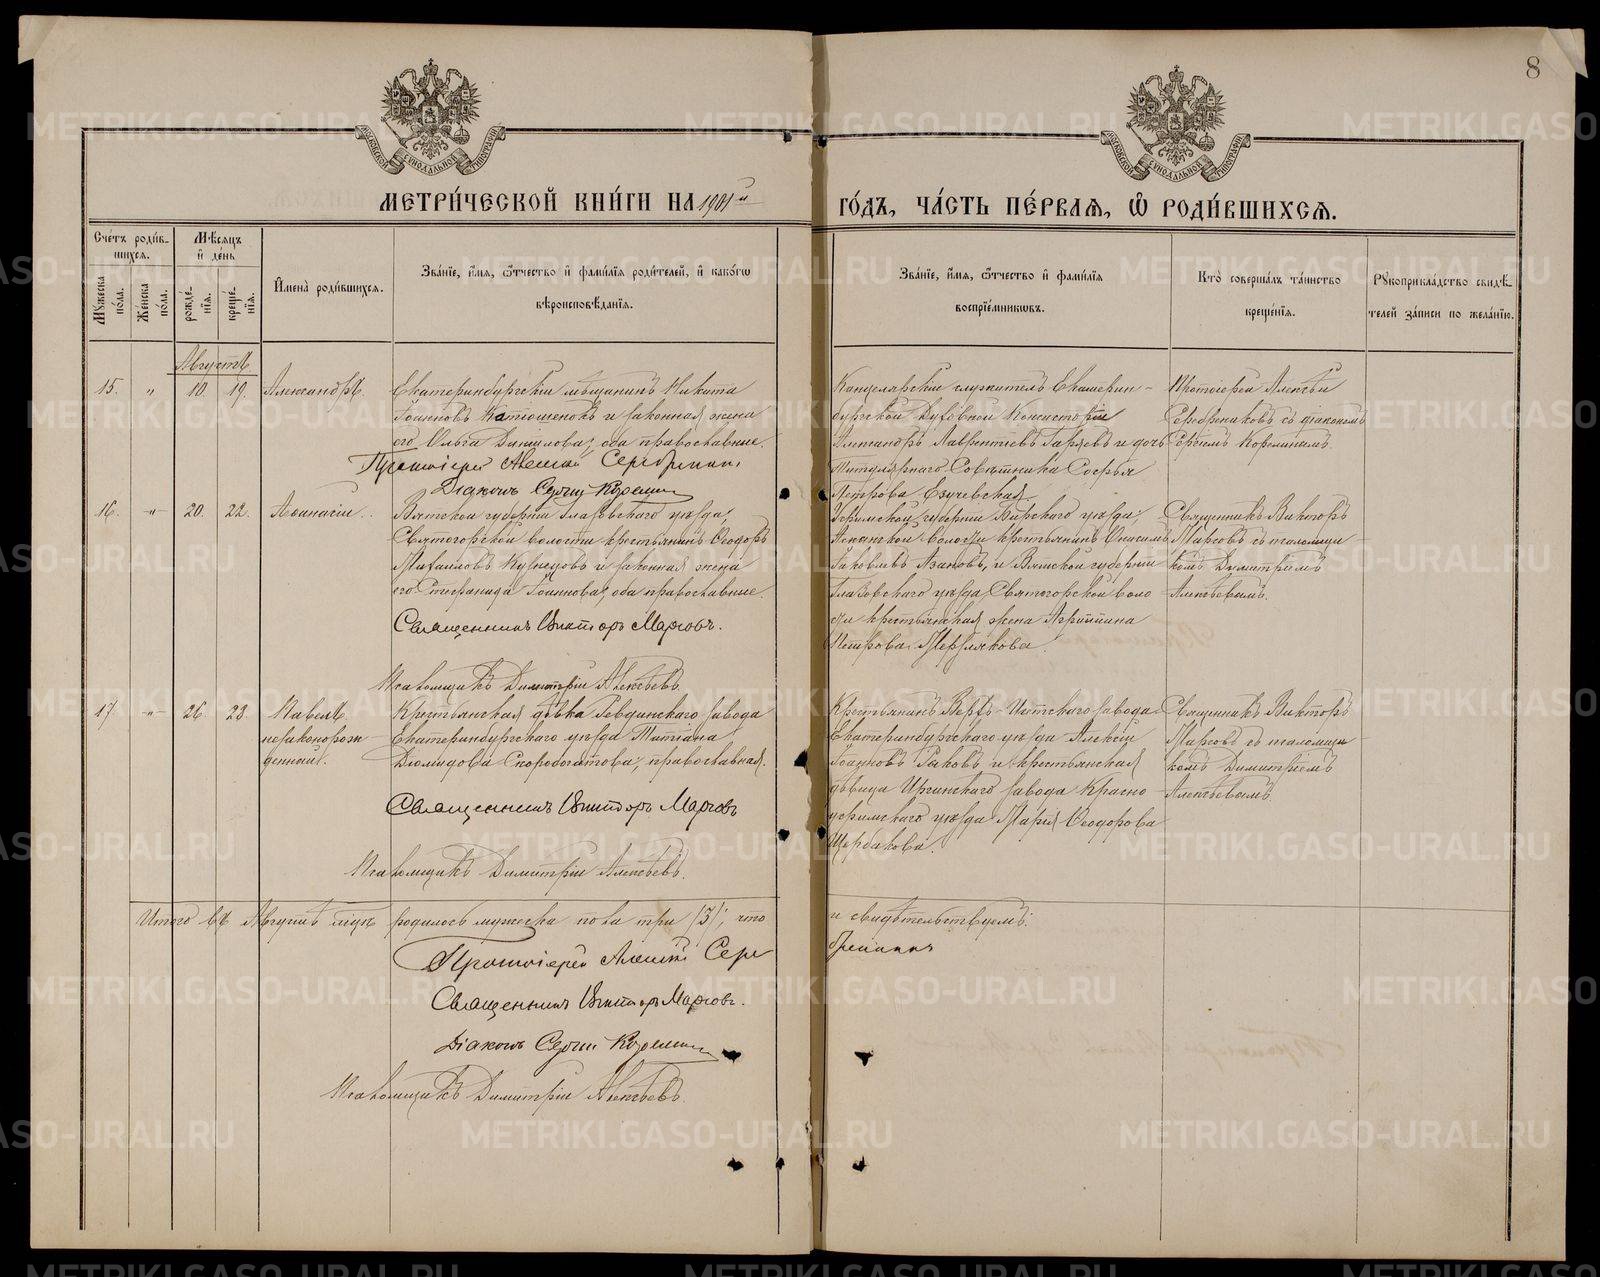 8
МОСКОВСКОЙ СѴНОДАЛЬНОЙ ТИПОГРАФІИ
МОСКОВСКОЙ СѴНОДАЛЬНОЙ ТИПОГРАФІИ
МЕТРИ́ЧЕСКОЙ КНИ́ГИ НА 1901й
ГО́ДЪ, ЧА́СТЬ ПЕ́РВАЯ, Ѡ РОДИ́ВШИХСЯ.
Сче́тъ роди́в-
шихся.
Му́жеска по́ла.
Же́нска по́ла.
Мѣ́сяцъ и де́нь
рожде́-нїя.
креще́-нїя.
И́мена роди́вшихся.
Зва́нїе, и́мя, ѻ́тчество и фами́лїя роди́телей, и како́гѡ
вѣроисповѣ́данїя.
Зва́нїе, и́мя, ѻ́тчество и фами́лїя
воспрїе́мникѡвъ.
Кто̀ соверша́лъ та́инство
креще́нїя.
Рꙋкоприкла́дство свидѣ́-
телей за́писи по жела́нїю.
Августъ
15. " 10. 19. Александръ.
Екатеринбургскій мѣщанинъ Никита
Іоанновъ Катюшенокъ и законная жена
его Ольга Данилова, оба православные.
Протоіерей Алексій Серебренник
Діаконъ Сергій Корелин
Канцелярскій служитель Екатерин-
бургской Духовной Консисторіи
Александръ Лаврентіевъ Гаряевъ и дочь
Титулярнаго Совѣтника Софья
Петрова
Протоіерей Алексѣй
Серебрениковъ съ діакономъ
Сергіемъ Корелинымъ
16. " 20. 22. Аѳанасій.
Вятской губерніи Глазовскаго уѣзда,
Святогорской волости крестьянинъ Ѳеодоръ
Михаиловъ Кузнецовъ и законная жена
его Стефанида Іоаннова, оба православные.
Священникъ Викторъ Марговъ.
Псаломщикъ Димитрій Алексѣевъ.
Уфимской губерніи Бирскаго уѣзда,
волости крестьянинъ Онисимъ
Іаковлевъ Азановъ, и Вятской губерніи
Глазовскаго уѣзда Святогорской воло
сти крестьянская жена Агриппина
Петрова Мерзлякова.
Священникъ Викторъ
Марговъ съ псаломщи
комъ Димитріемъ
Алексѣевымъ.
17. " 26. 28. Павелъ
незаконорож
денный.
Крестьянская дѣвка Ревдинскаго завода
Екатеринбургскаго уѣзда Татіана
Діомидова Скоробогатова, православная.
Священникъ Викторъ Марговъ
Псаломщикъ Димитрій Алексѣевъ.
Крестьянинъ Верхъ-Исетскаго завода
Екатеринбургскаго уѣзда Алексій
Іоанновъ Раковъ и крестьянская
дѣвица Иргинскаго завода Красно
уфимскаго уѣзда Марія Ѳеодорова
Щербакова.
Священникъ Викторъ
Марговъ съ псаломщи
комъ Димитріемъ
Алексѣевымъ
Итого въ Августѣ мѣсяцѣ родилось мужеска пола три /3/, что и свидѣтельствуемъ:
Протоіерей Алексій Сере бренниковъ
Священникъ Викторъ Марговъ.
Діаконъ Сергій Корелин
Псаломщикъ Димитрій Алексѣевъ.
METRIKI.GASO-URAL.RU